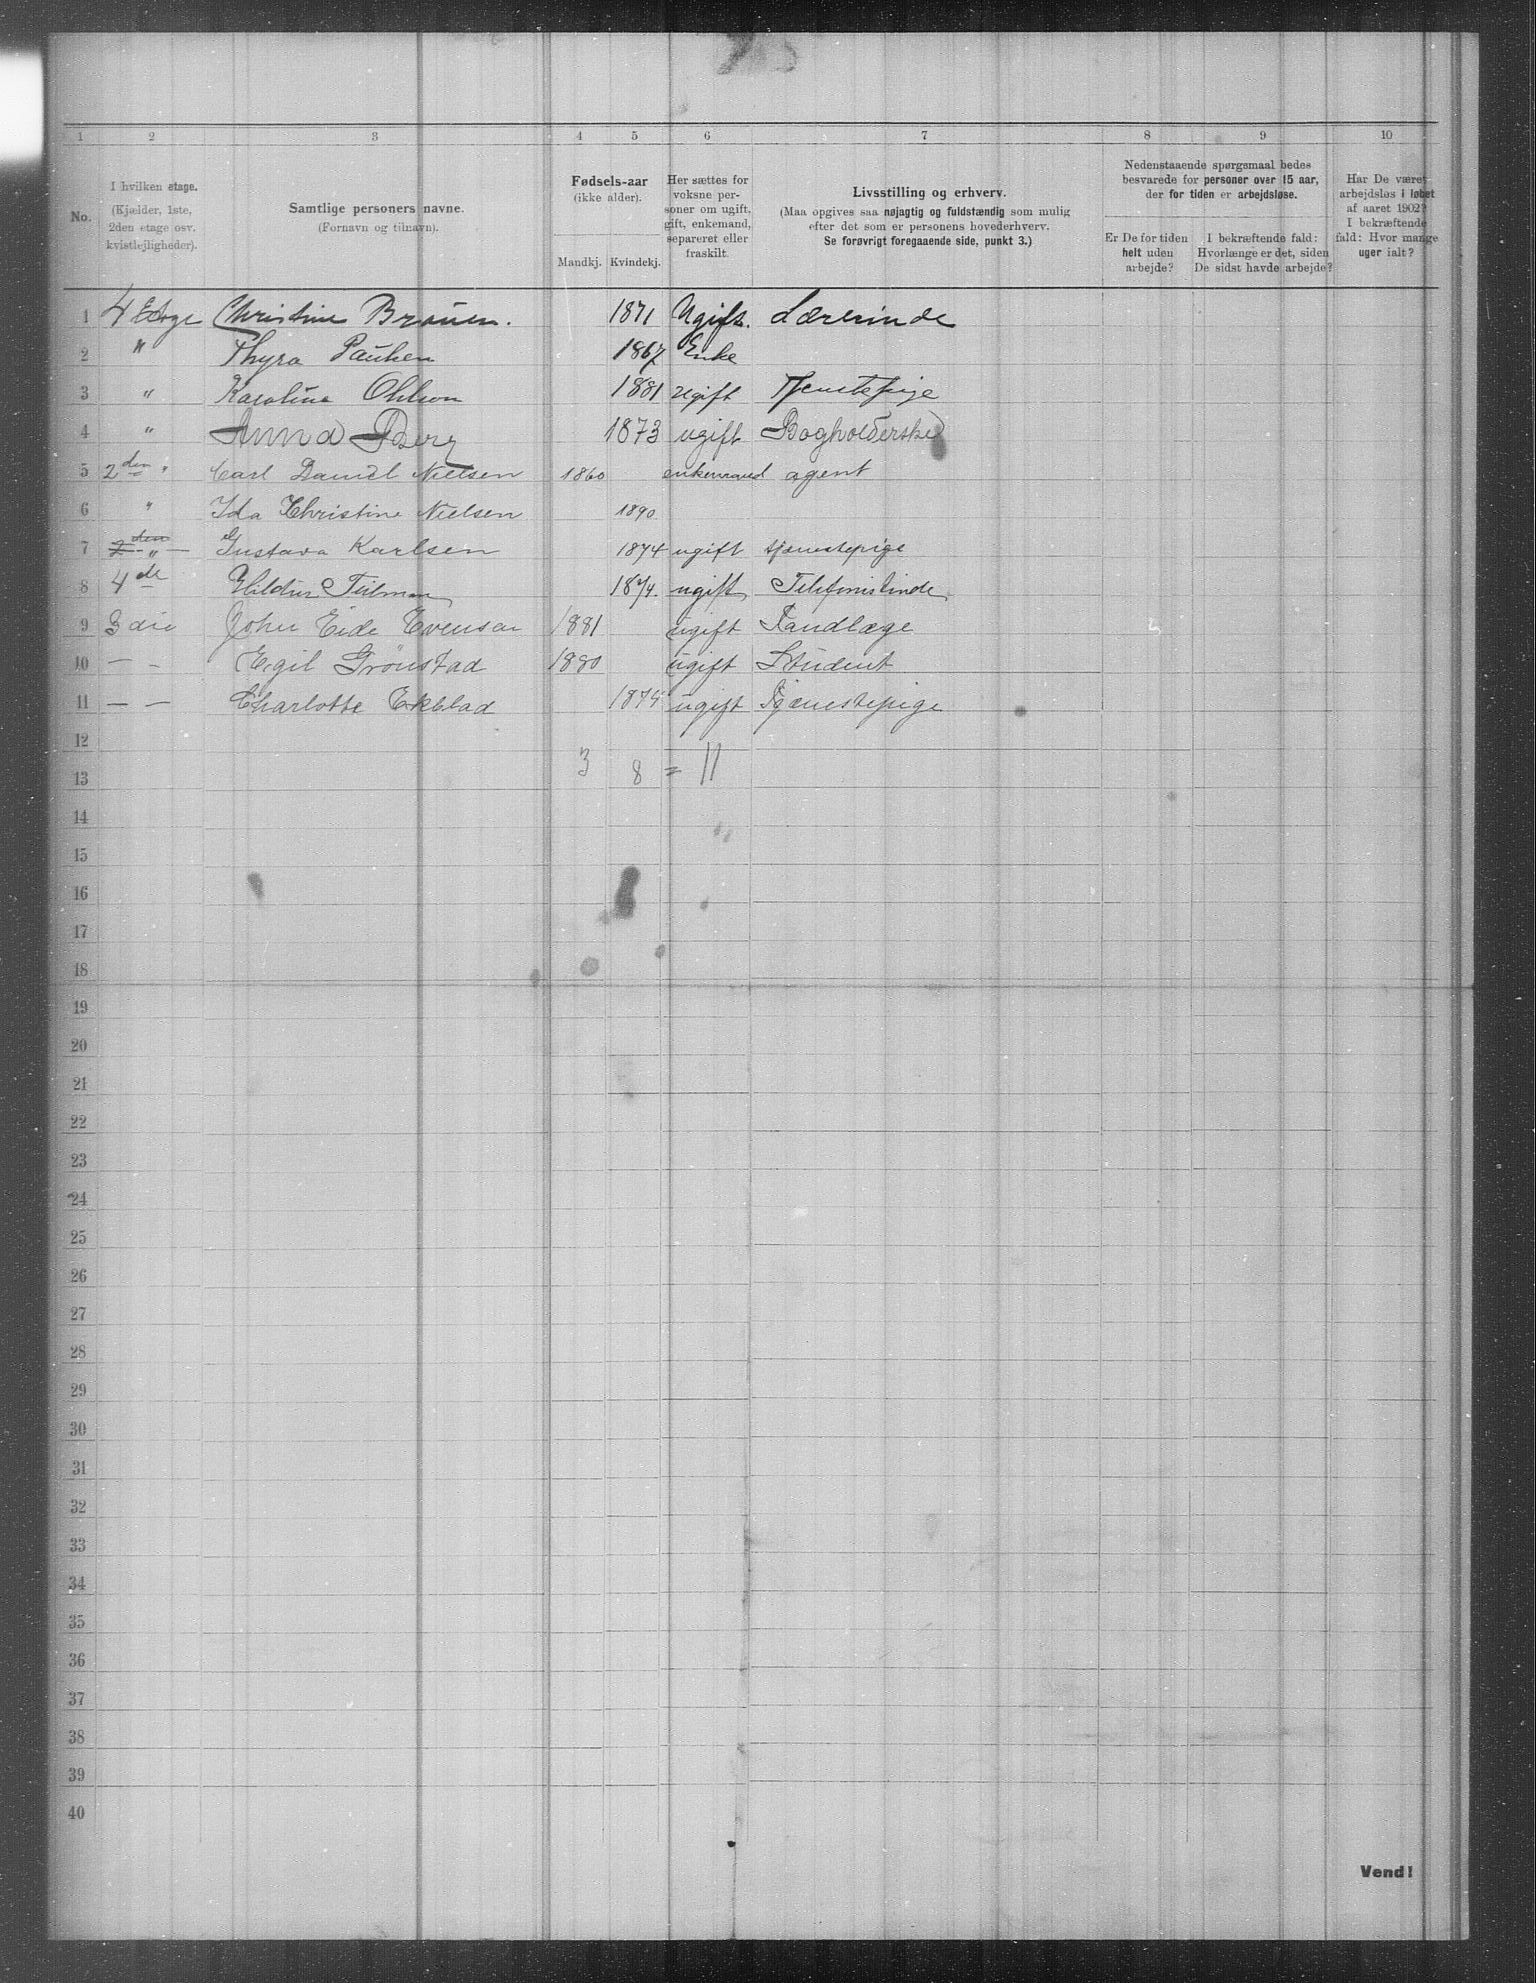 1 2 3 4 5 6 7 8 9 10
No.
I hvilken etage.
(Kjælder, 1ste,
2den etage osv.
kvistlejligheder).
Samtlige personers navne.
(Fornavn og tilnavn).
Fødsels-aar
(ikke alder).
Mandkj. Kvindekj.
Her sættes for
voksne per-
soner om ugift,
gift, enkemand,
separeret eller
fraskilt.
Livsstilling og erhverv.
(Maa opgives saa nøjagtig og fuldstændig som mulig
efter det som er personens hovederhverv.
Se forøvrigt foregaaende side, punkt 3.)
Nedenstaaende spørgsmaal bedes
besvarede for personer over 15 aar,
der for tiden er arbejdsløse.
Er De for tiden
helt uden
arbejde?
I bekræftende fald:
Hvorlænge er det, siden
De sidst havde arbejde?
Har De været
arbejdsløs i løbet
af aaret 1902?
I bekræftende
fald: Hvor mange
uger ialt?
1 4 Etage Christine Brouen. 1871 Ugift. Lærerinde
2 " Thyra Paulsen 1867 Enke
3 " Karolina Ohlson 1881 ugift Tjenstepige
4 " Anna Berg 1873 ugift Bogholderske
5 2den " Carl Daniel Nielsen 1860 enkemand agent
6 " Ida Christine Nielsen 1890
7 2den " Gustava Karlsen 1874 ugift tjenestepige
8 4de Hildur 1874. ugift Telefonistinde
9 3die John Eide Evensen 1881 ugift Tandlæge
10 — - Egil Grönstad 1880 ugift Student
11 — — Charlotte Ekblad 1874 ugift Tjænestepige
12
13 3 8 = 11
14
15
16
17
18
19
20
21
22
23
24
25
26
27
28
29
30
31
32
33
34
35
36
37
38
39
40
Vend!